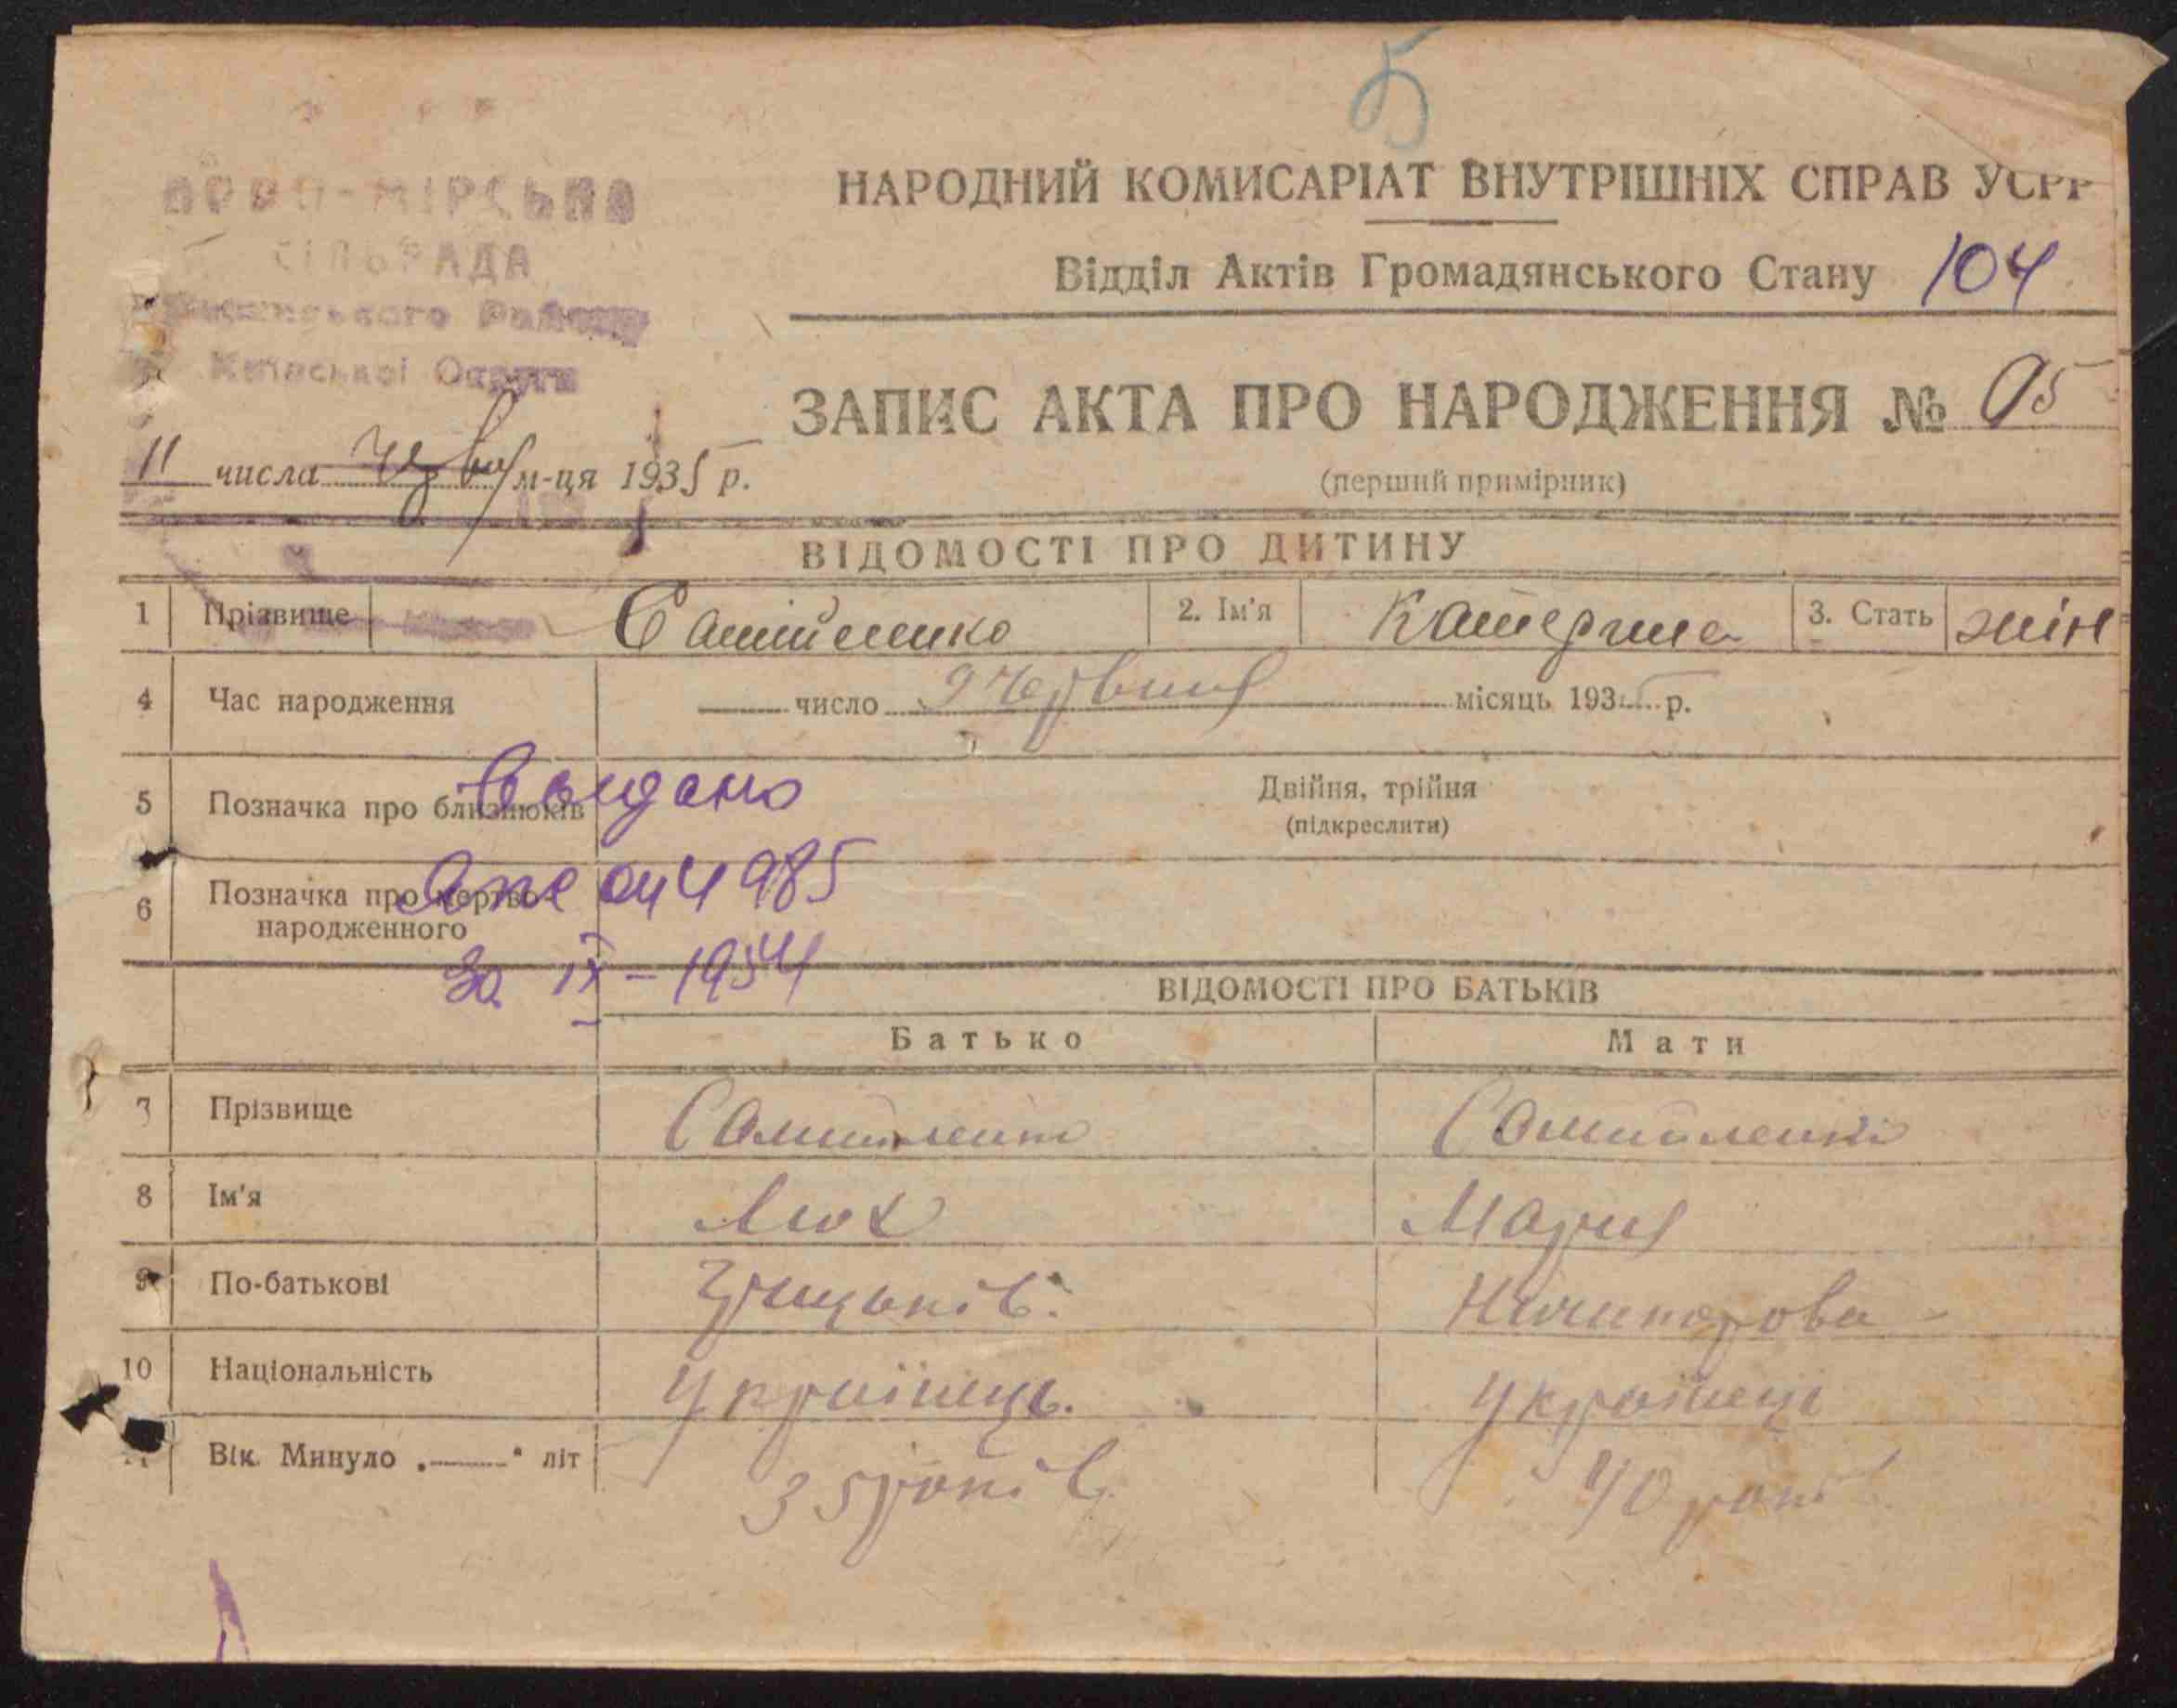 5
НАРОДНИЙ КОМИСАРІАТ ВНУТРІШНІХ СПРАВ УСРР
Відділ Актів Громадянського Стану 104
-МІРСЬКА
СІЛЬРАДА
Района
Київської Округи
ЗАПИС АКТА ПРО НАРОДЖЕННЯ №
(перший примірник)
11 числа червня м-ця 1935 р.
ВІДОМОСТІ ПРО ДИТИНУ
1 Прізвище Самійленко 2. Ім'я Катерина 3. Стать жін
4 Час народження число 9 червня місяць 193 р.
5 Позначка про близнюків Двійня, трійня
(підкреслити)
Видано
6 Позначка про мертво-
народженного
985
за IX – 1954
ВІДОМОСТІ ПРО БАТЬКІВ
Батько Мати
7 Прізвище Самійленко Самійленко
8 Ім'я Мария
9 По-батькові Грицьків. Ничипорова
10 Національність Українець. Українець
Вік. Минуло „——“ літ 35 років 40 років